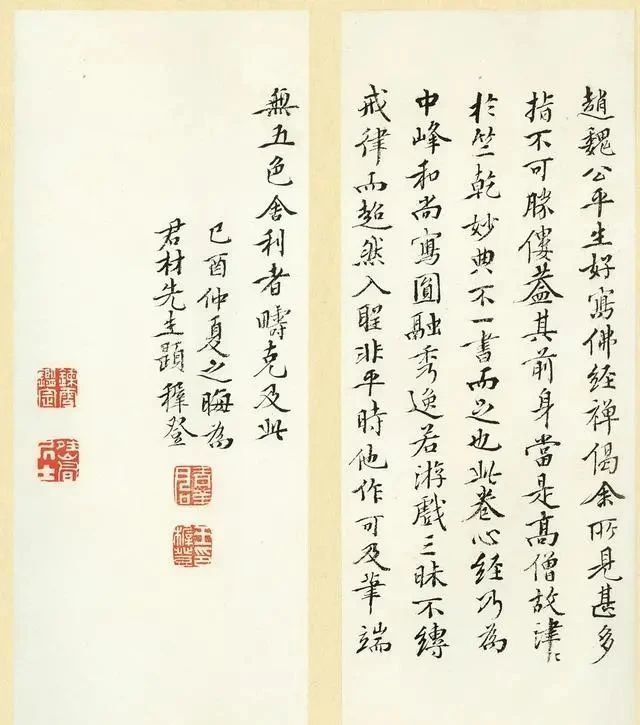 趙魏公平生好寫佛經禅偈余所見甚多
指不可勝僂葢其前身當是髙僧故津〻
於竺乾妙典不一書而足也此卷心經乃為
中峰和尚寫圓融秀逸若游戲三昧不縛
戒律而超然入聖非平時他作可及筆端
無五色舍利者疇克及此
己酉仲夏之晦為
君材先生題穉登
王穉登印